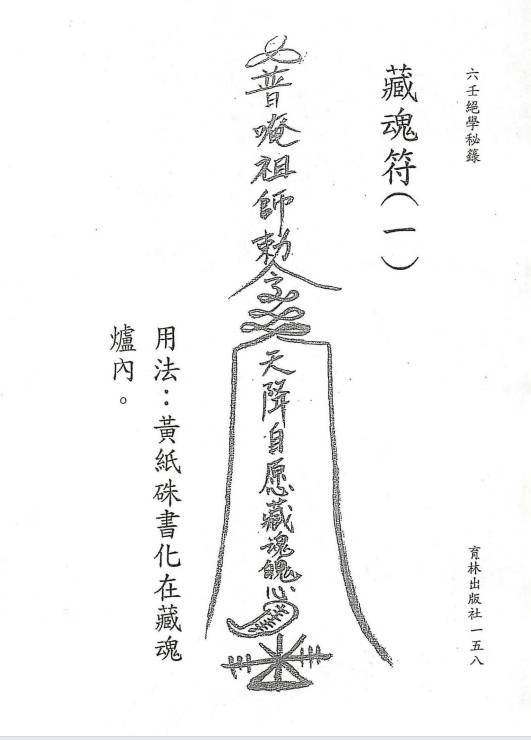 六壬絕學秘籙
藏魂符(一)
普唵祖師勅令
天降自愿藏魂魄心
用法：黃紙硃書化在藏魂
爐內。
育林出版社一五八